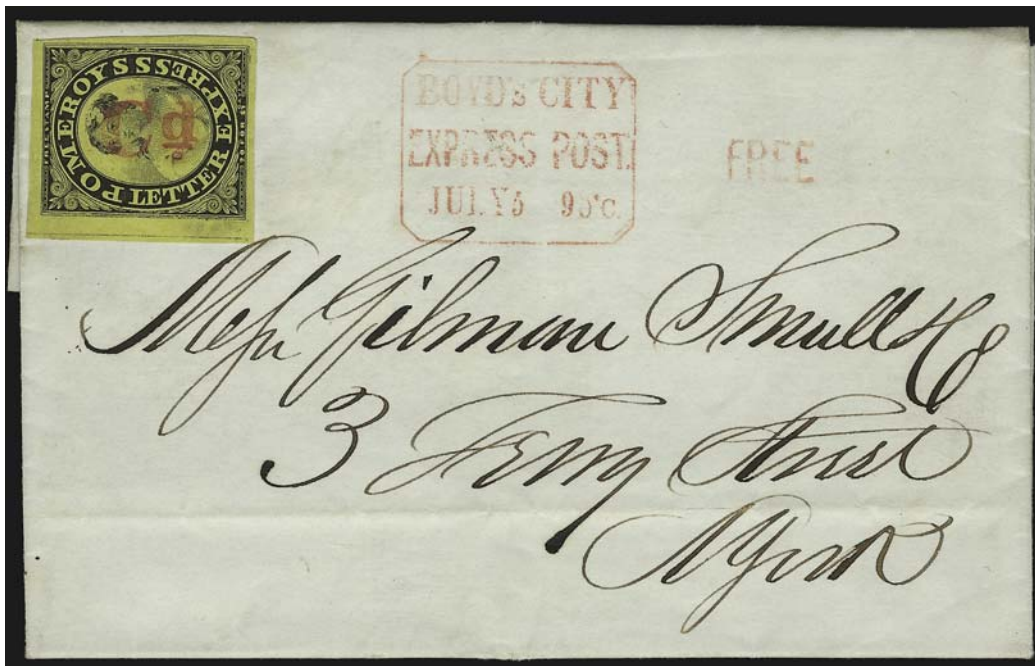 POMEROYS LETTER EXPRESS
Cd
BOYD's CITY
EXPRESS POST.
JULY 5 9 o'c.
FREE
Mess Gilman Smull & Co
3 Ferry Street
NYork